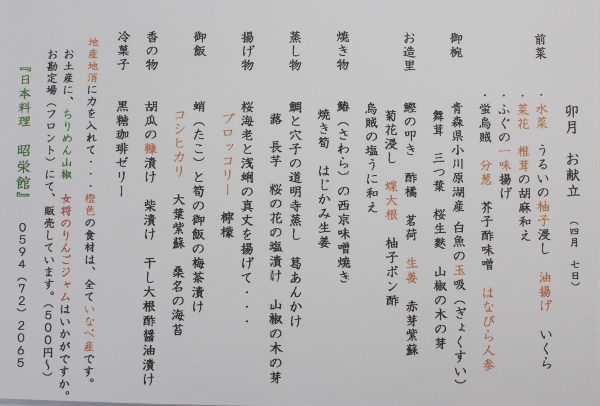 卯月　お献立　（四月　七日）
前菜　・水菜　うるいの柚子浸し　油揚げ　いくら
・菜花　椎茸の胡麻和え
・ふぐの一味揚げ
・蛍烏賊　分葱　芥子酢味噌　はなびら人参
御椀　青森県小川原湖産　白魚の玉吸（ぎょくすい）
舞茸　三つ葉　桜生麩　山椒の木の芽
お造里　鰹の叩き　酢橘　茗荷　生姜　赤芽紫蘇
菊花浸し　蝶大根　柚子ポン酢
烏賊の塩うに和え
焼き物　鰆（さわら）の西京味噌焼き
焼き筍　はじかみ生姜
蒸し物　鯛と穴子の道明寺蒸し　葛あんかけ
蕗　長芋　桜の花の塩漬け　山椒の木の芽
揚げ物　桜海老と浅蜊の真丈を揚げて・・・
ブロッコリー　檸檬
御飯　蛸（たこ）と筍の御飯の梅茶漬け
コシヒカリ　大葉紫蘇　桑名の海苔
香の物　胡瓜の糠漬け　柴漬け　干し大根酢醤油漬け
冷菓子　黒糖珈琲ゼリー
地産地消に力を入れて・・・橙色の食材は、全ていなべ産です。
お土産に、ちりめん山椒　女将のりんごジャムはいかがですか。
お勘定場（フロント）にて、販売しています。（500円〜）
『日本料理　昭栄館』　0594（72）2065